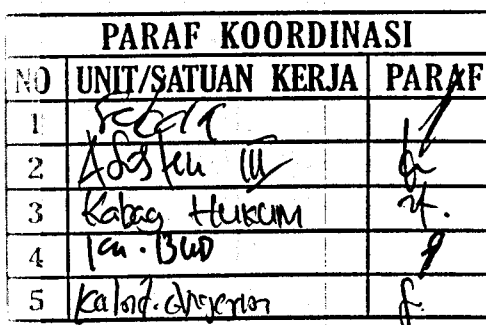 PARAF KOORDINASI
NO UNIT/SATUAN KERJA PARAF
1 Sekda
2 Asisten III
3 Kabag HUKUM
4
5 Kabid.